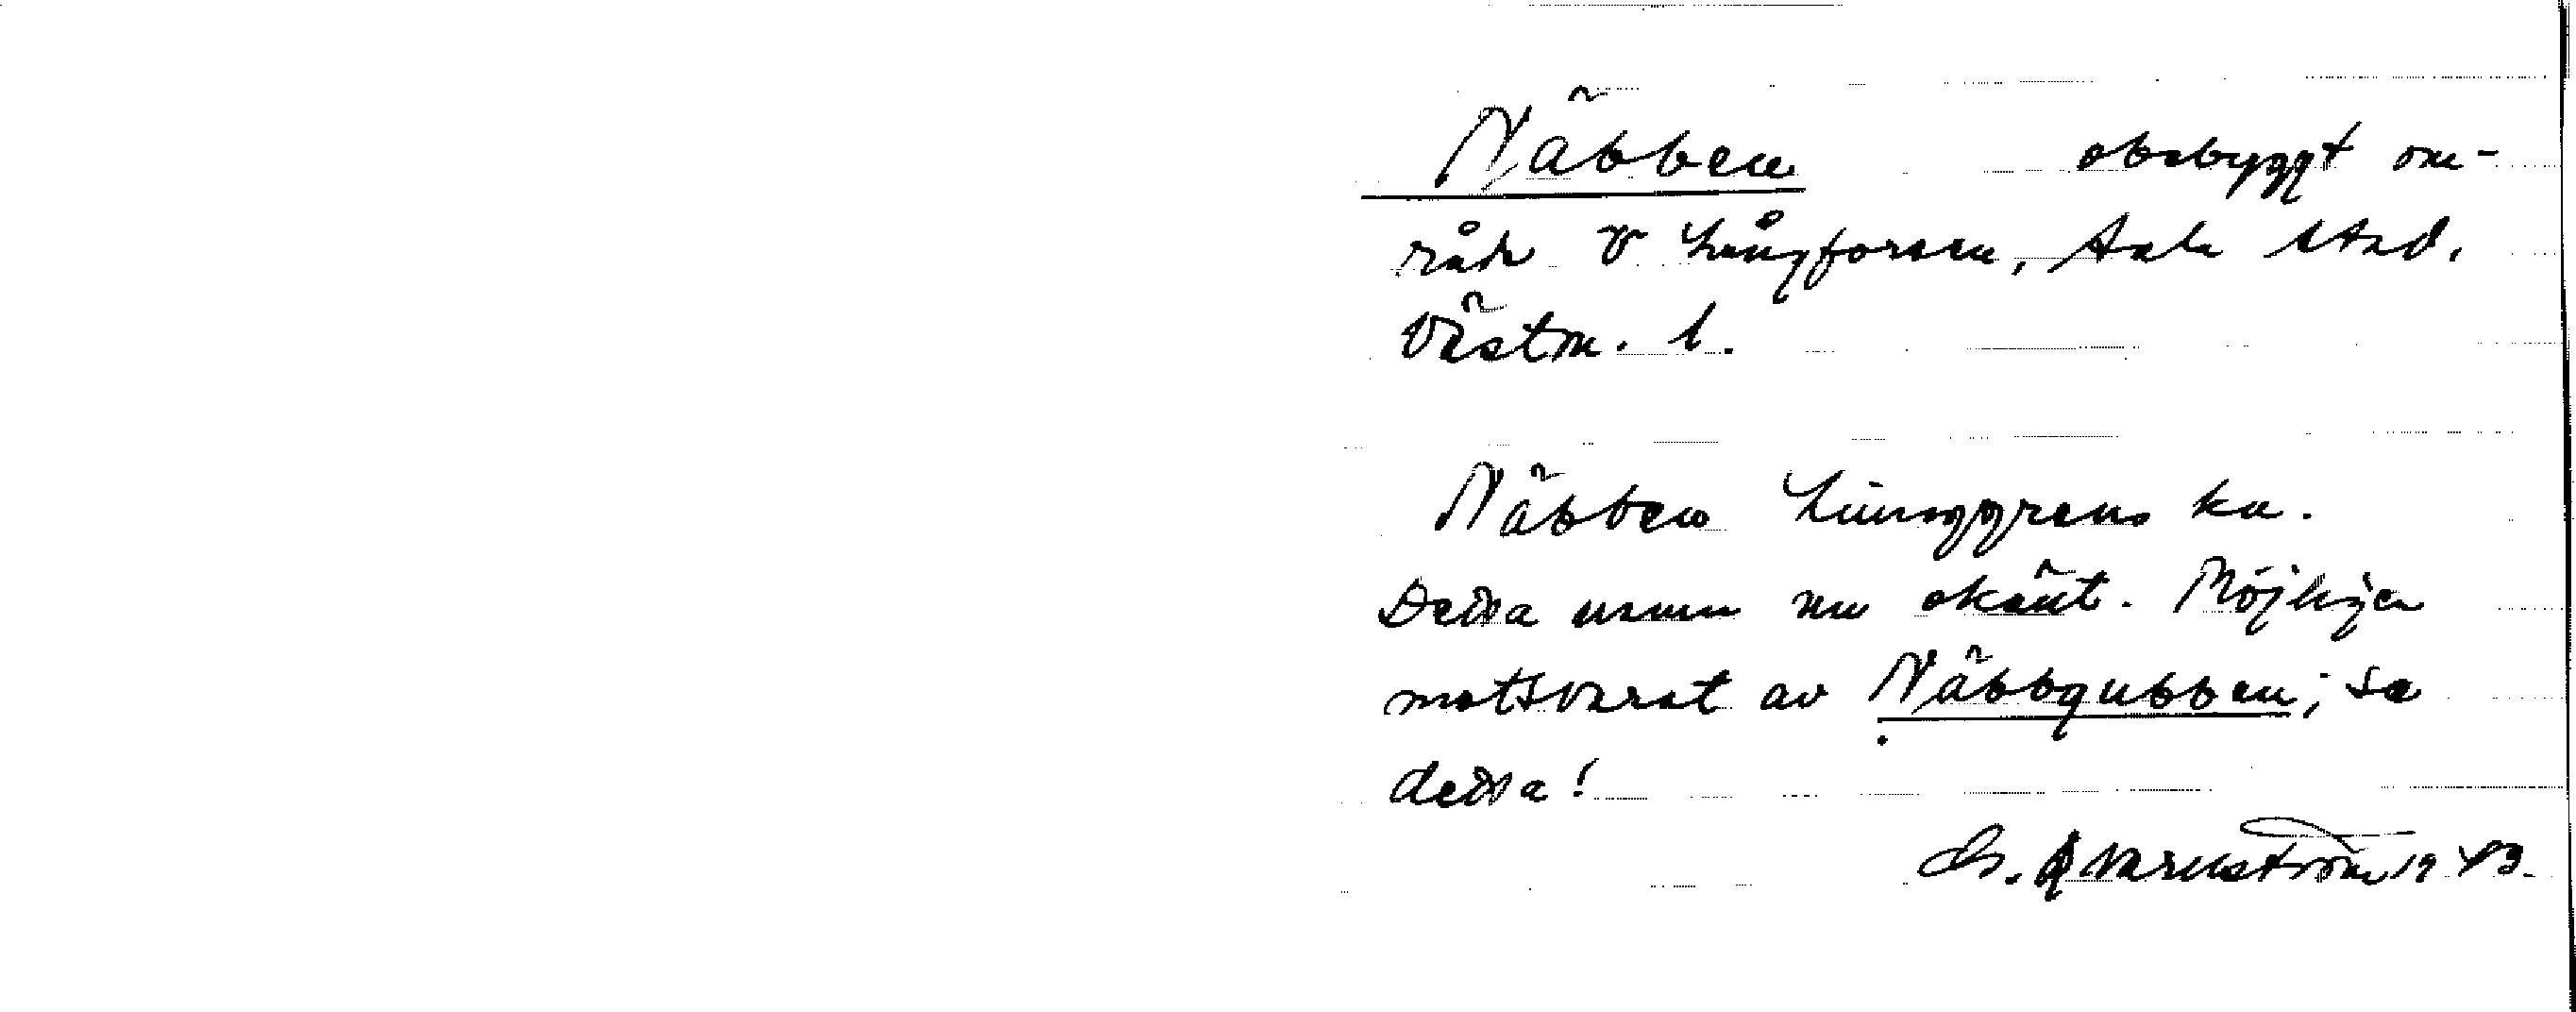 Näbben obebyggt om-
råde V Långforsen, Sala stad,
Västm. l.
Näbben Ljunggrens ka.
Detta namn nu okänt. Möjligen
motsvarat av Näbbgubben; se
detta!
G. Qvarnström 1943.